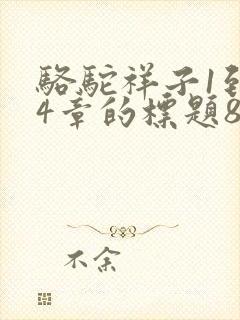 駱駝祥子1到
4章的標題8
不余